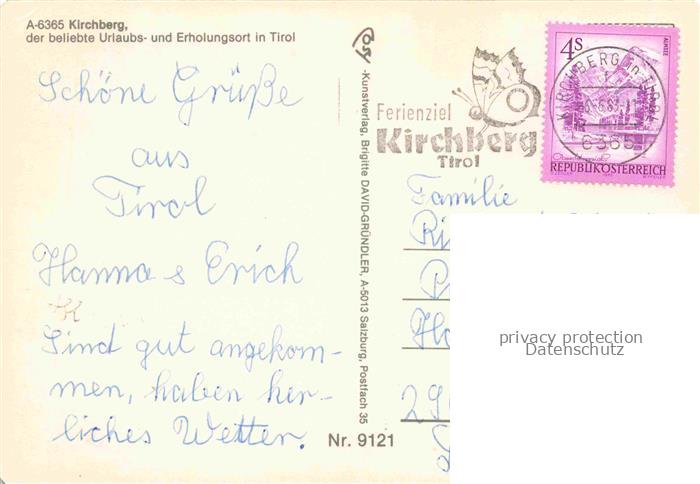 A-6365 Kirchberg,
der beliebte Urlaubs- und Erholungsort in Tirol
Schöne Grüße
aus
Tirol
Hanna & Erich
Sind gut angekom-
men, haben herr-
liches Wetter.
-Kunstverlag, Brigitte DAVID-GRÜNDLER, A-5013 Salzburg, Postfach 35
Nr. 9121
Ferienziel
Kirchberg
Tirol
4S
ALMSEE
REPUBLIK ÖSTERREICH
KIRCHBERG in TIROL
6365
Familie
privacy protection
Datenschutz